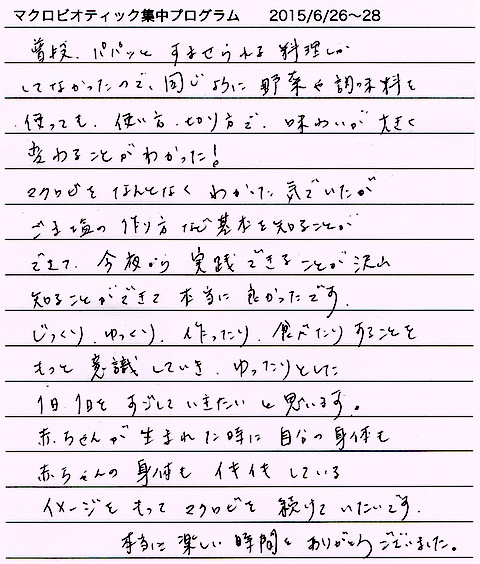 マクロビオティック集中プログラム　2015/6/26～28
普段、パパッと すませられる 料理しか
してなかったので、同じように 野菜や調味料を
使っても、使い方、切り方で、味わいが 大きく
変わることが わかった!
マクロビを なんとなく わかった 気でいたが
ごま塩の 作り方など 基本を知ることが
できて、今夜から 実践できることが沢山
知ることができて 本当に 良かったです。
じっくり、ゆっくり、作ったり、食べたり することを
もっと 意識していき、ゆったりとした
1日1日を すごして いきたいと 思います。
赤ちゃんが 生まれた時に 自分の身体も
赤ちゃんの 身体も イキイキ している
イメージをもって マクロビを 続けて いたいです。
本当に楽しい 時間を ありがとうございました。